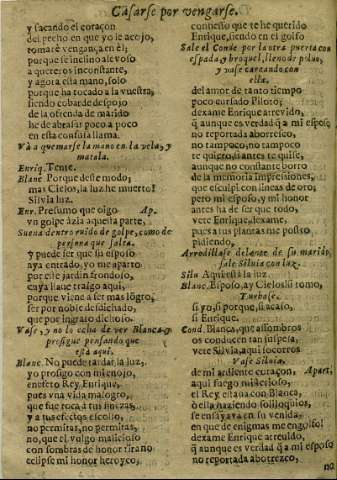 Casarse por vengarse.
y sacando el coraçon
del pecho en que yo le acojo,
tomarè vengança en èl;
porque se inclinò alevoso
a quereros inconstante,
y agora esta mano, solo
porque ha tocado a la vuestra,
siendo cobarde despojo
de la ofrenda de marido
he de abrasar poco a poco
en esta confusa llama.
Và a quemarse la mano en la vela, y
matala.
Enriq. Tente.
Blanc. Porque deste modo;
mas Cielos, la luz he muerto!
Silvia luz.
Enr. Presumo que oigo Ap.
vn golpe àzia aquella parte,
Suena dentro ruido de golpe, como de
persona que salta.
y puede ser que su esposo
aya entrado, yo me aparto
por este jardin frondoso,
cuya llave traigo aqui,
porque viene a ser mas lògro,
ser por noble desdichado,
que por ingrato dichoso.
Vase, y no lo echa de ver Blanca, y
prosigue pensando que
està aqui.
Blanc. No puede tardar la luz,
yo prosigo con mi enojo,
en efeto Rey Enrique,
pues vna vida malogro,
que fue roca a tus finezas,
y a tus efectos escollo,
no permitas, no permitas,
no, que el vulgo malicioso
con sombras de honor tirano
eclipse mi honor heroyco,
confiesso que te he querido
Enrique, siendo en el golfo
Sale el Conde por la otra puerta con
espada, y broquel, lleno de polvo,
y vase careando con
ella.
del amor de tanto tiempo
poco cursado Piloto;
dexame Enrique atrevido,
q̃ aunque es verdad q̃ a mi esposo
no reportada aborrezco,
no tampoco, no tampoco
te quiero, si antes te quise,
aunque no constante borro
de la memoria impressiones,
que esculpì con lineas de oro;
pero mi esposo, y mi honor
antes ha de ser que todo,
vete Enrique, dexame,
pues a tus plantas me postro
pidiendo,
Arrodillase delante de su marido,
sale Silvia con luz.
Silv. Aqui està la luz.
Blanc. Esposo, ay Cielos! si tomo,
Turbase.
si yo, si porque, si acaso,
si Enrique.
Cond. Blanca, que assombros
os conducen tan suspensa,
vete Silvia, aqui socorros
Vase Silvia,
de mi ardiente coraçon, Apart,
aqui fuego misterioso,
el Rey estaua con Blanca,
ò està haziendo soliloquios,
se ensayava en su venida,
en que de enigmas me engolfo!
dexame Enrique atreuido,
q̃ aunque es verdad q̃ a mi esposo
no reportada aborrezco,
no